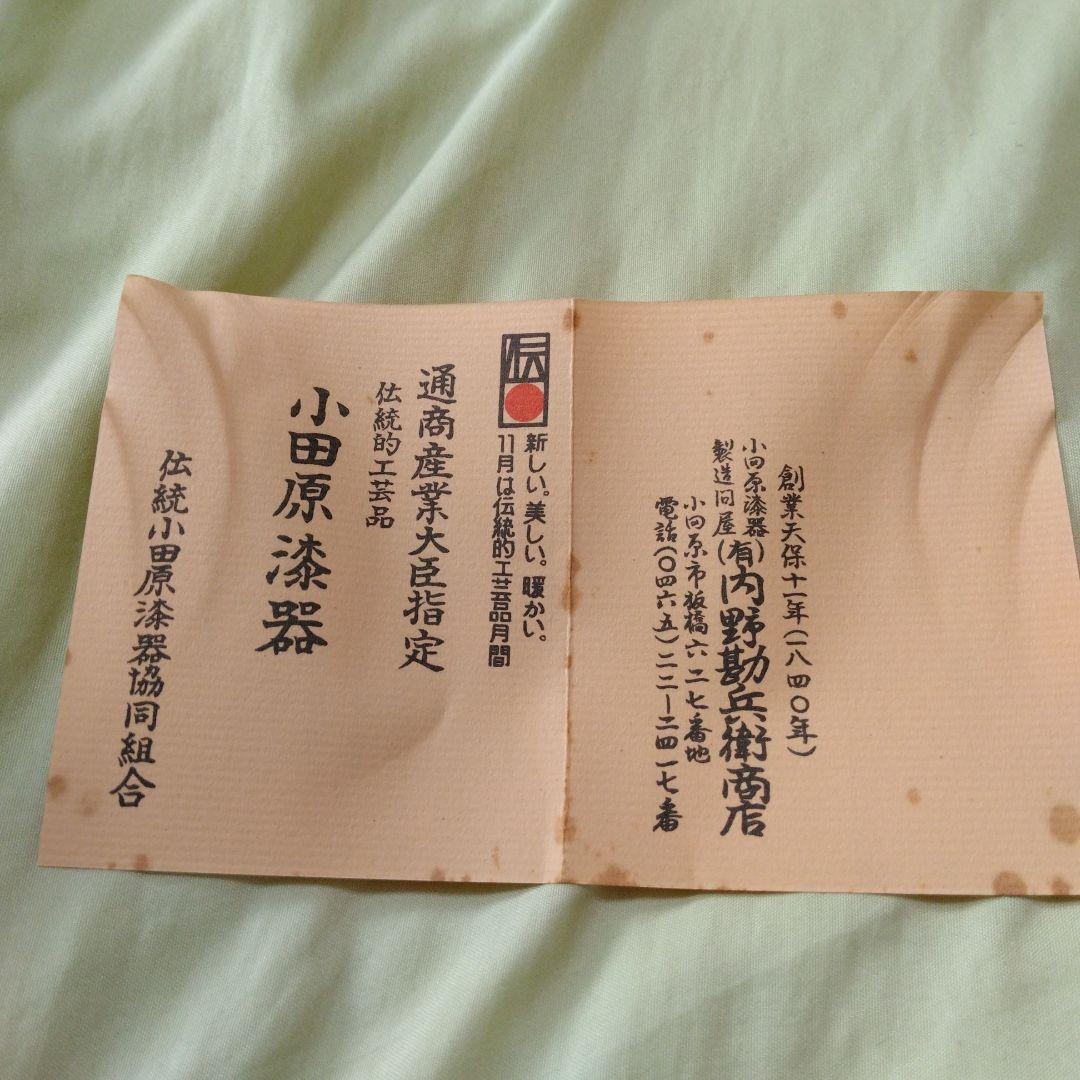 創業天保十一年(一八四〇年)
小田原漆器
製造問屋
(有)内野勘兵衛商店
小田原市板橋六二七番地
電話(〇四六五)二二ー二四一七番
伝
新しい。美しい。暖かい。
11月は伝統的工芸品月間
通商産業大臣指定
伝統的工芸品
小田原漆器
伝統小田原漆器協同組合